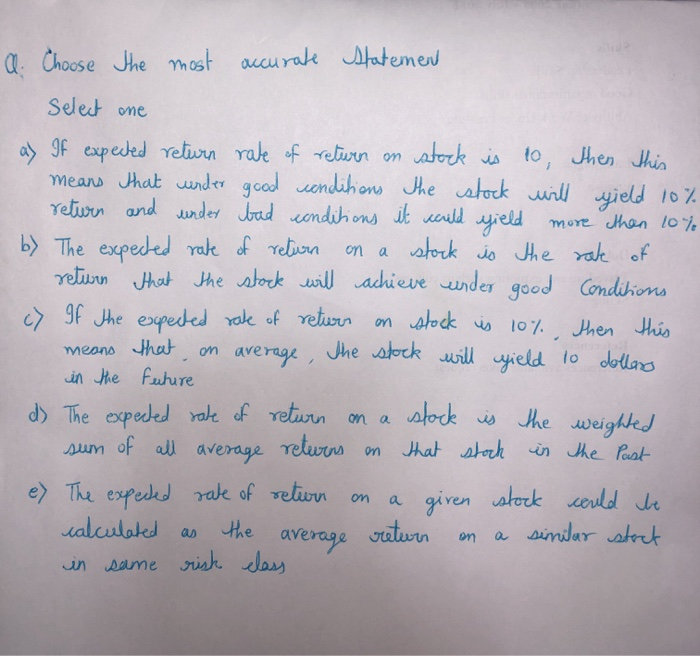 Q. Choose the most accurate Statement
Select one
a) If expected return rate of return on stock is 10, then this
means that under good conditions the stock will yield 10%
return and under bad conditions it could yield more than 10%
b) The expected rate of return on a stock is the rate of
return that the stock will achieve under good Conditions
c) If the expected rate of return on stock is 10%, then this
means that, on average, the stock will yield 10 dollars
in the future
d) The expected rate of return on a stock is the weighted
sum of all average returns on that stock in the Past
e) The expected rate of return on a given stock could be
calculated as the average return on a similar stock
in same risk class